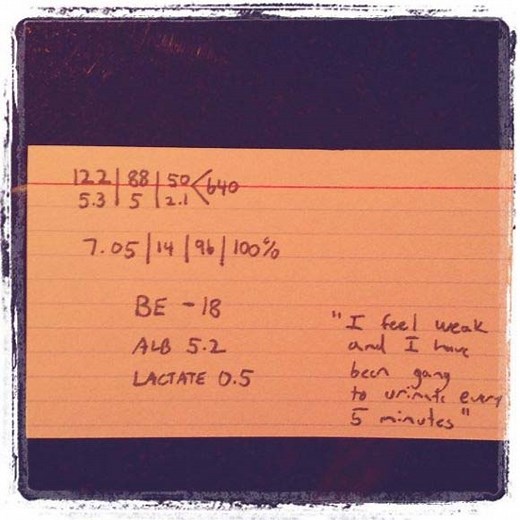 122 | 88 | 50 < 640
5.3 | 5 | 2.1
7.05 | 14 | 96 | 100%
BE -18
ALB 5.2
LACTATE 0.5
"I feel weak
and I have
been gang
to urinate every
5 minutes"